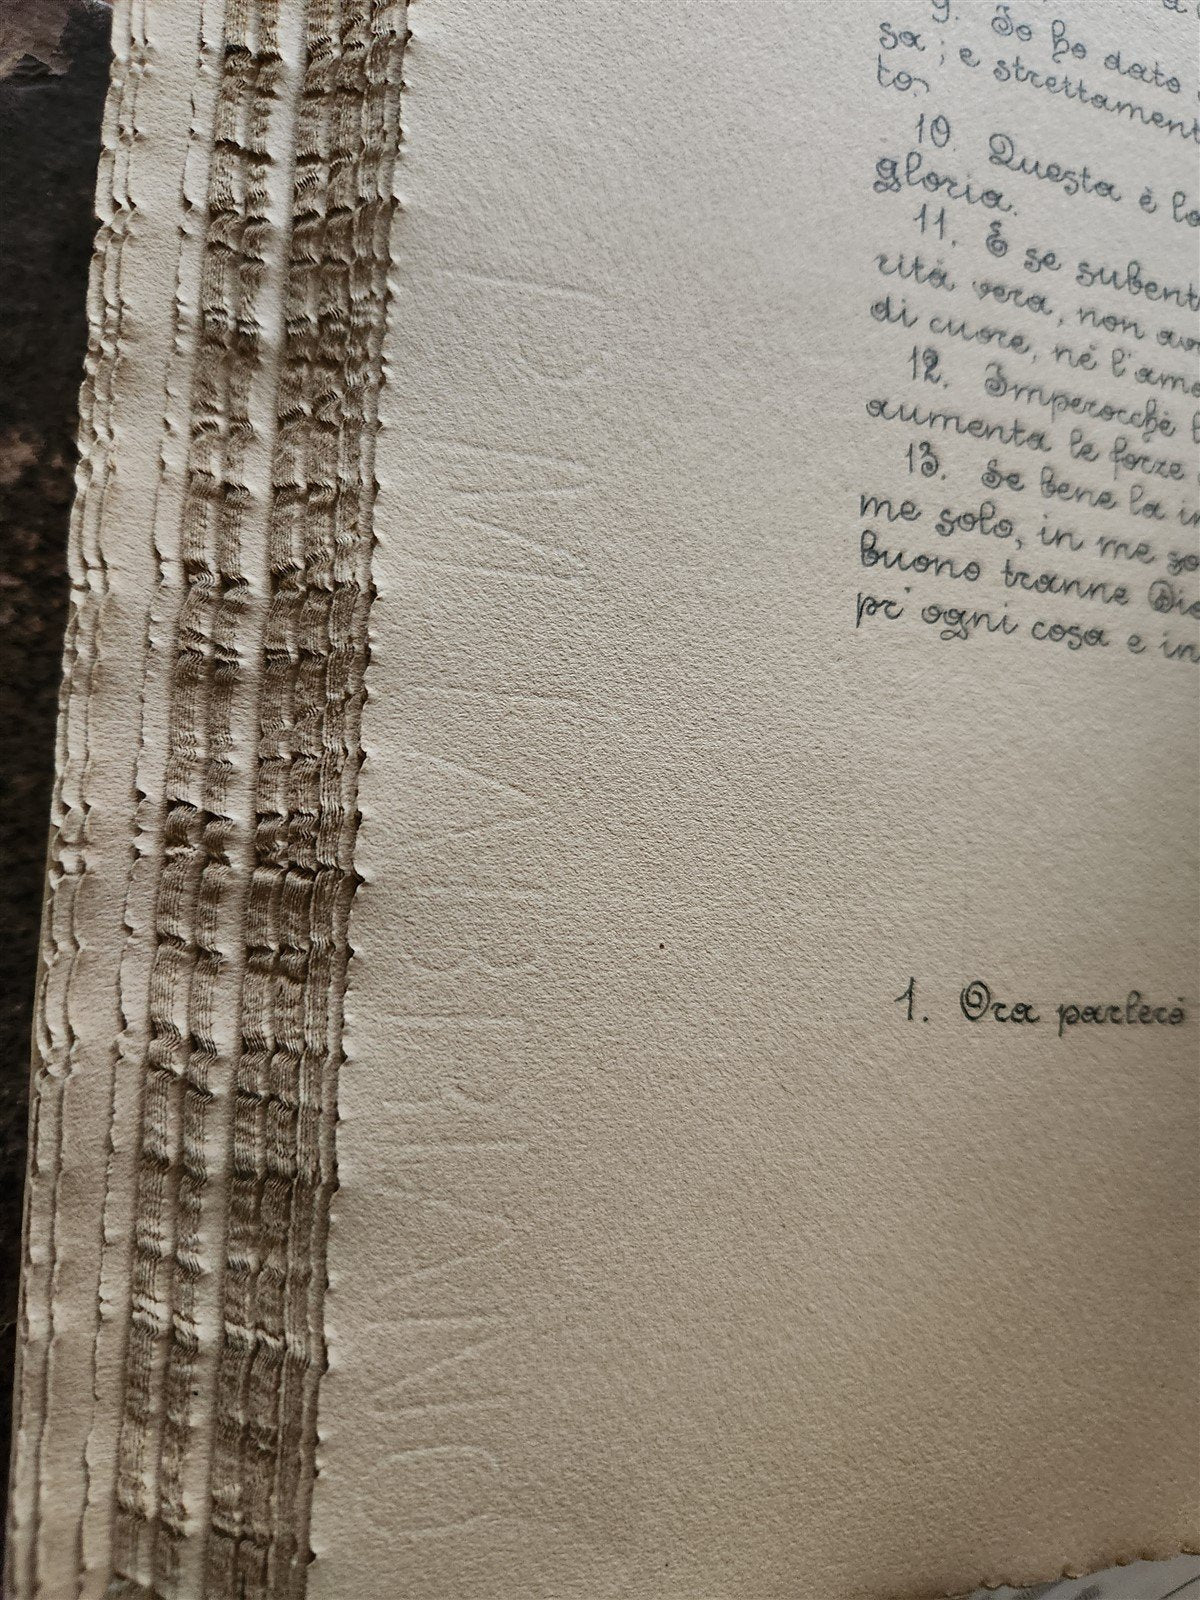 9. Io ho dato
sa; e strettament
to.
10. Questa è la
gloria.
11. E se subent
rità vera, non av
di cuore, nè l'amo
12. Imperocchè
aumenta le forze
13. Se bene la in
me solo, in me so
buono tranne Dio
pr' ogni cosa e in
1. Ora parlerò
P.M. FABRIANO